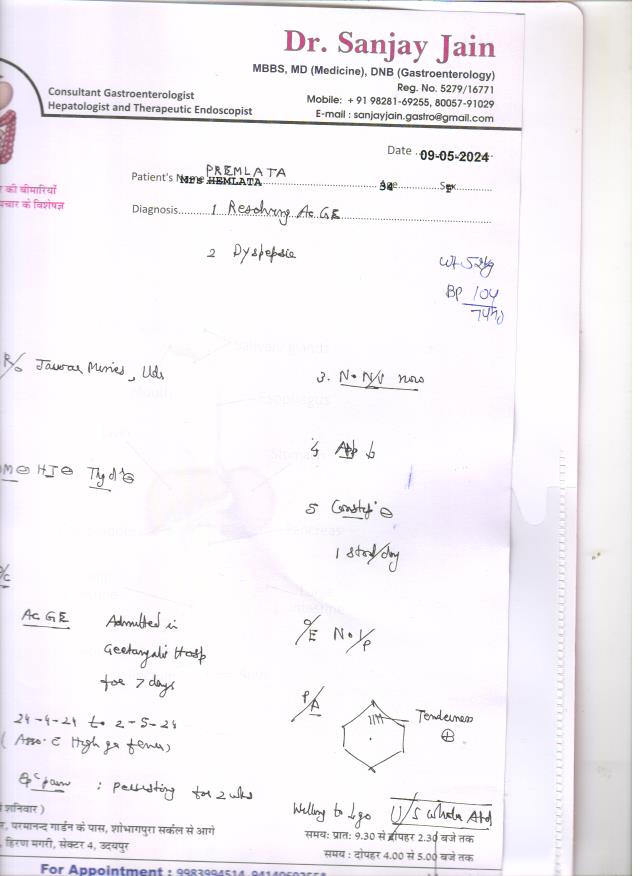 Dr. Sanjay Jain
MBBS, MD (Medicine), DNB (Gastroenterology)
Reg. No. 5279/16771
Consultant Gastroenterologist
Hepatologist and Therapeutic Endoscopist
Mobile: + 91 98281-69255, 80057-91029
E-mail : sanjayjain.gastro@gmail.com
Date .. 09-05-2024
PREMLATA
Patient's Name Mrs HEMLATA Age 34 Sex F
की बीमारियों
चार के विशेषज्ञ
Diagnosis 1 Resolving Ac GE
2 Dyspepsia
Wt 52kg
BP 104
R/o Jawar Mines, Uds
3. No N/V now
4 App ↓
M ⊖ HT ⊖ Thyd's ⊖
5 Constip ⊖
1 stool/day
/c
Ac GE Admitted in
Geetanjali Hosp
for 7 days
O/E No I/P
P/A
Tenderness
⊕
24-4-24 to 2-5-24
(Asso. c High gr fever)
pain : persisting for 2 wks
Willing to go U/S whole Abd
शनिवार )
र, परमानन्द गार्डन के पास, शोभागपुरा सर्कल से आगे
हिरण मगरी, सेक्टर 4, उदयपुर
समय: प्रात: 9.30 से दोपहर 2.30 बजे तक
समय : दोपहर 4.00 से 5.00 बजे तक
For Appointment : 9983994514,